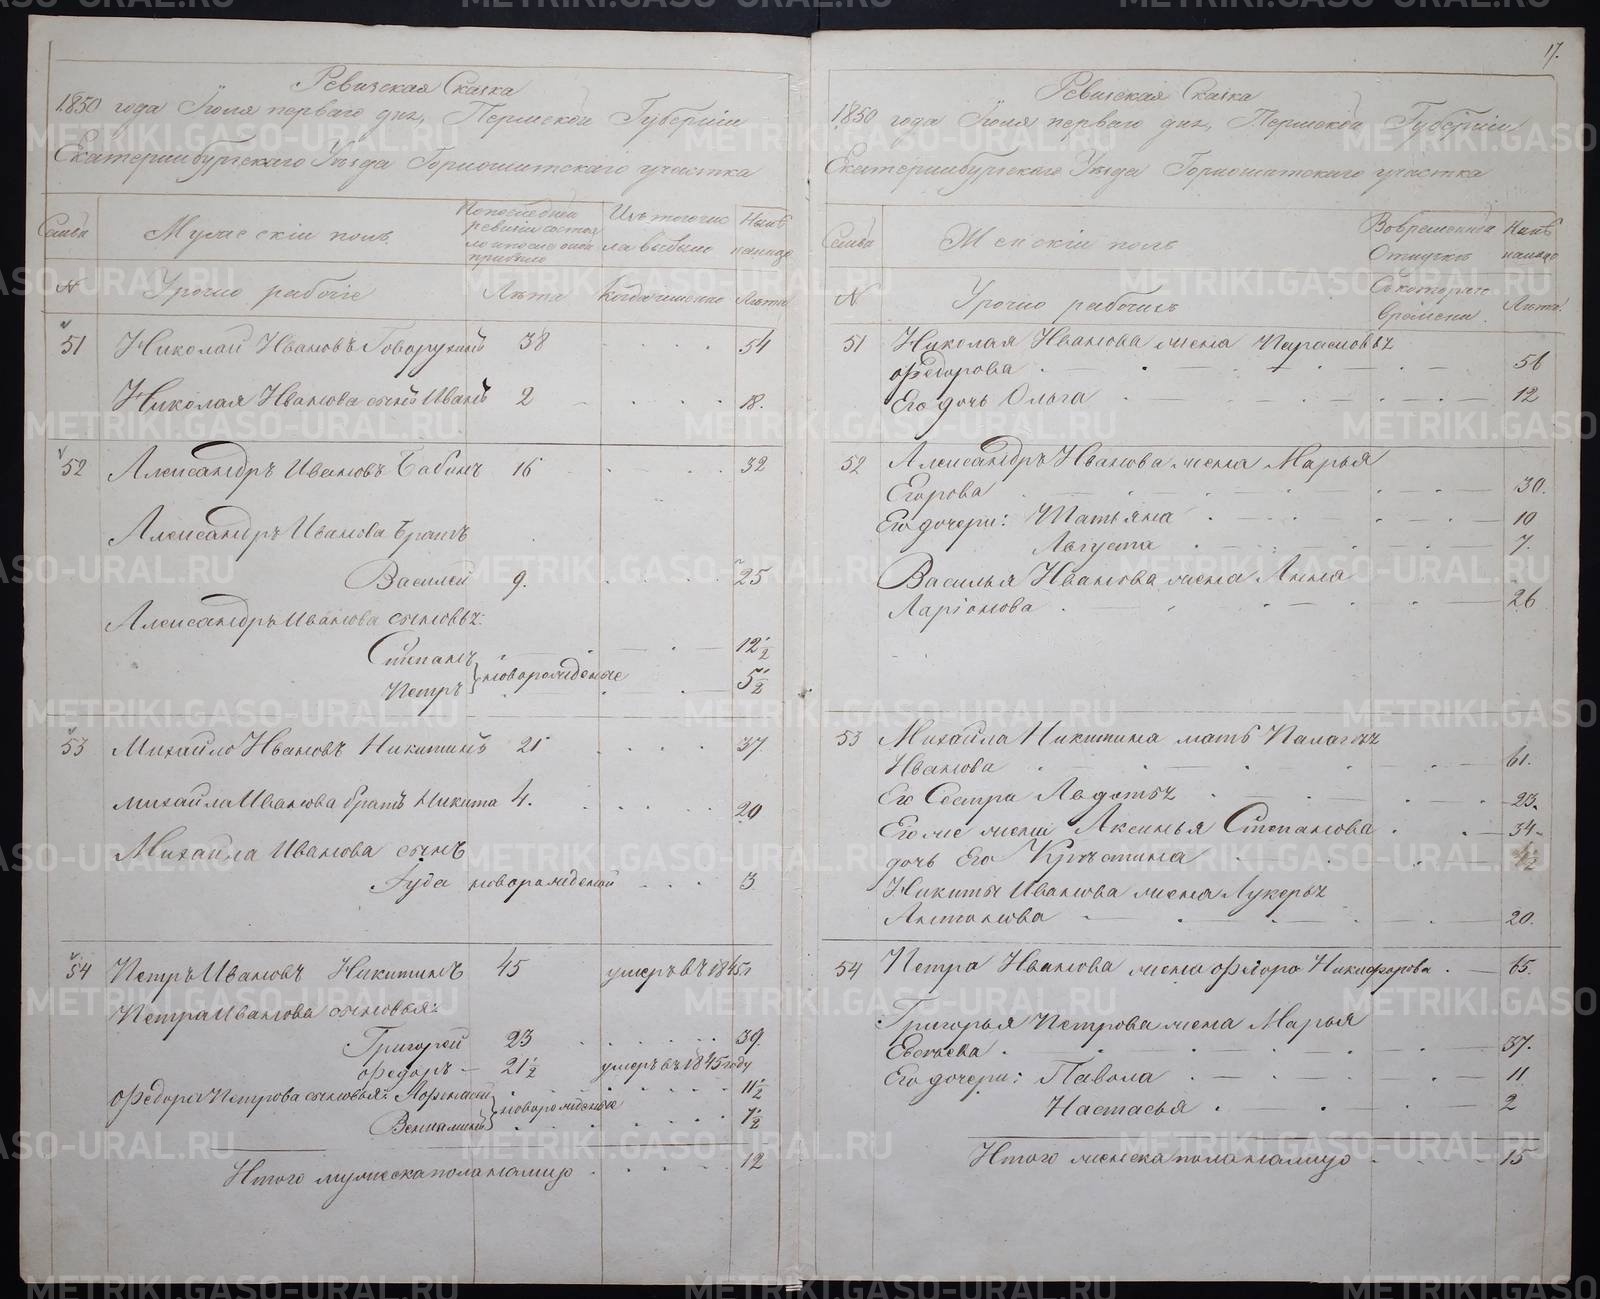 Ревизская Сказка
1850 года Июля перваго дня, Пермской Губернiи
Екатеринбургскаго Уѣзда Горнощитскаго участка
Семьи
Мужескiй полъ
По последней ревизiи состояло и после оной прибыло
Изъ того числа выбыло
Нынѣ на лицо
№
Урочно рабочiе
Лѣта
Когда именно
Лѣта
51 Николай Ивановъ Говорухинъ 38 54
Николая Иванова сынъ Иванъ 2 18.
52 Александръ Ивановъ Бабинъ 16 32
Александръ Иванова братъ
Василей 9. 25
Александръ Иванова сыновья:
Степанъ 12 1/2
Петръ новорожденные 5 1/2
53 Михайло Ивановъ Никитинъ 21 37.
Михайла Иванова братъ Никита 4. 20
Михайла Иванова сынъ
Iуда новорожденной 3
54 Петръ Ивановъ Никитинъ 45 умеръ въ 1845
Петра Иванова сыновья:
Григорей 23 39.
Федоръ 21 1/2 умеръ въ 1845 году
Федора Петрова сыновья: 11 1/2
Венiаминъ новорожденные 7 1/2
Итого мужеска пола на лицо 12
17.
Ревизская Сказка
1850 года Июля перваго дня, Пермской Губернiи
Екатеринбургскаго Уѣзда Горнощитскаго участка
Семьи
Женскiй полъ
Во временной Отлучкѣ
Нынѣ на лицо
№
Урочно рабочихъ
Съ котораго времени
Лѣта
51 Николая Иванова жена Парасковья
Федорова 56
Его дочь Ольга 12
52 Александръ Иванова жена Марья
Егорова 30.
Его дочери: Татьяна 10
Августа 7.
Василья Иванова жена Анна
Ларiонова 26
53 Михайла Никитина мать Палагея
Иванова 61.
Его Сестра Авдотья 23.
Его же жена Аксинья Степанова 34
дочь Его Кръстина
Никиты Иванова жена Лукерья
Антонова 20.
54 Петра Иванова жена Федора Никифорова 65.
Григорья Петрова жена Марья
Евсѣева 37.
Его дочери: Павола 11
Настасья 2
Итого женска пола на лицо 15
METRIKI.GASO-URAL.RU